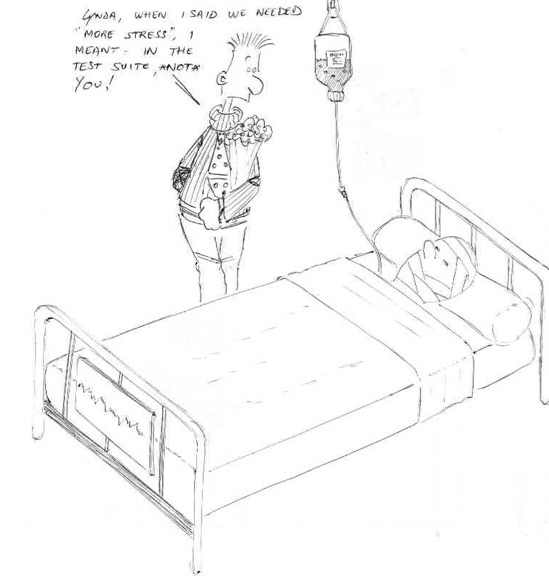 LYNDA, WHEN I SAID WE NEEDED
"MORE STRESS", I
MEANT: IN THE
TEST SUITE, *NOT*
YOU!